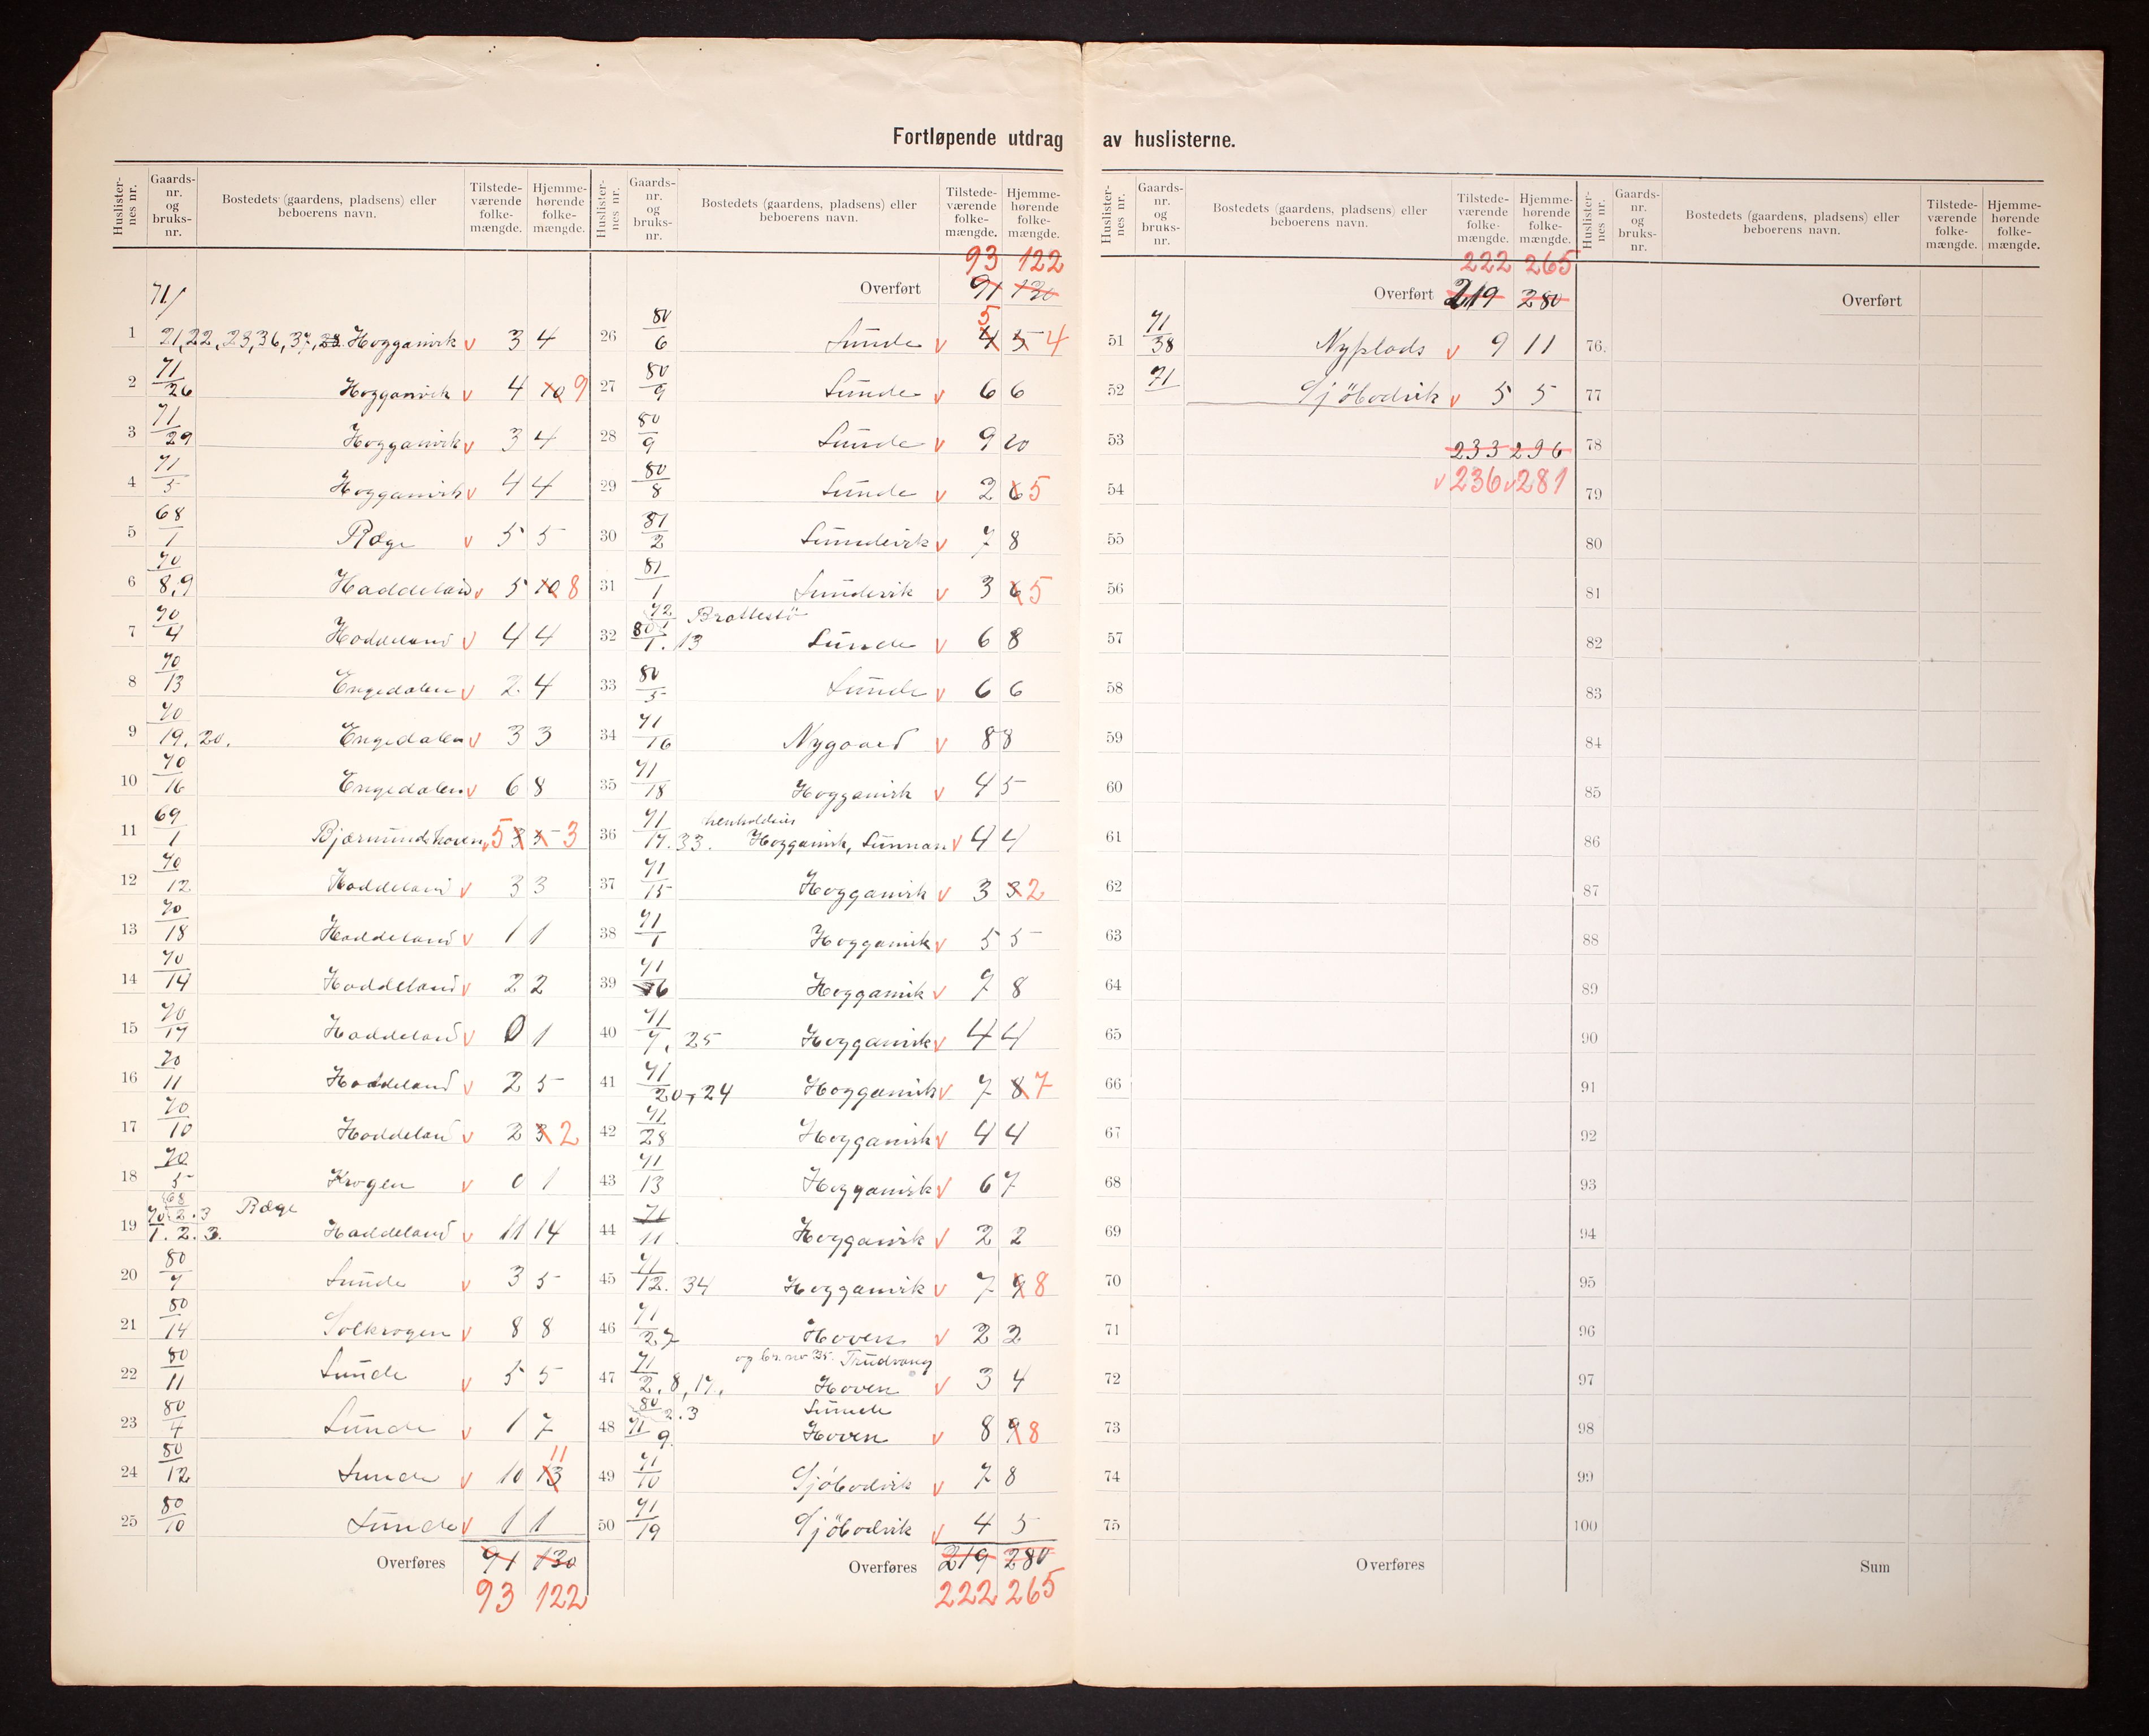 Fortløpende utdrag av huslisterne.
Huslister-nes nr. Gaards-nr. og bruks-nr. Bostedets (gaardens, pladsens) eller beboerens navn. Tilstede-værende folke-mængde. Hjemme-hørende folke-mængde.
1 71/21,22,23,36,37, Hogganvik v 3 4
2 71/26 Hogganvik v 4 10 9
3 71/29 Hogganvik v 3 4
4 71/5 Hogganvik v 4 4
5 68/1 Rœge v 5 5
6 70/8,9 Haddeland v 5 10 8
7 70/4 Haddeland v 4 4
8 70/13 Engedalen v 2 4
9 70/19. 20. Engedalen v 3 3
10 70/16 Engedalen v 6 8
11 69/1 Bjørnundshoven v 5 3 5 3
12 70/12 Haddeland v 3 3
13 70/18 Haddeland v 1 1
14 70/14 Haddeland v 2 2
15 70/17 Haddeland v 0 1
16 70/11 Haddeland v 2 5
17 70/10 Haddeland v 2 3 2
18 70/5 Krogen v 0 1
68/2.3 Rœge
19 70/1. 2. 3. Haddeland v 11 14
20 80/7 Sunde v 3 5
21 80/14 Solkrogen v 8 8
22 80/11 Sunde v 5 5
23 80/4 Sunde v 1 7
24 80/12 Sunde v 10 13 11
25 80/10 Sunde v 1 1
Overføres 91 130
93 122
Huslister-nes nr. Gaards-nr. og bruks-nr. Bostedets (gaardens, pladsens) eller beboerens navn. Tilstede-værende folke-mængde. Hjemme-hørende folke-mængde.
93 122
Overført 91 130
26 80/6 Sunde v 4 5 5 4
27 80/9 Sunde v 6 6
28 80/9 Sunde v 9 10
29 80/8 Sunde v 2 6 5
30 81/2 Sundevik v 7 8
31 81/1 Sundevik v 3 6 5
72/1 Brattestø
32 80/1. 13 Sunde v 6 8
33 80/5 Sunde v 6 6
34 71/16 Nygaard v 8 8
35 71/18 Hogganvik v 4 5
henholdsvis
36 71/17. 33. Hogganvik, Sunnan v 4 4
37 71/15 Hogganvik v 3 3 2
38 71/1 Hogganvik v 5 5
39 71/6 Hogganvik v 7 8
40 71/7, 25 Hogganvik v 4 4
41 71/20, 24 Hogganvik v 7 8 7
42 71/28 Hogganvik v 4 4
43 71/13 Hogganvik v 6 7
44 71/11. Hogganvik v 2 2
45 71/12. 34 Hogganvik v 7 9 8
46 71/27 Hoven v 2 2
og br. nr 35. Trudvang
47 71/2, 8, 17, Hoven v 3 4
80/2.3 Sunde
48 71/9. Hoven v 8 9 8
49 71/10 Sjöbodvik v 7 8
50 71/19 Sjöbodvik v 4 5
Overføres 219 280
222 265
Huslister-nes nr. Gaards-nr. og bruks-nr. Bostedets (gaardens, pladsens) eller beboerens navn. Tilstede-værende folke-mængde. Hjemme-hørende folke-mængde.
222 265
Overført 219 280
51 71/38 Nyplads v 9 11
52 71/ Sjöbodvik v 5 5
53 233 296
54 v 236 v 281
55
56
57
58
59
60
61
62
63
64
65
66
67
68
69
70
71
72
73
74
75
Overføres
Huslister-nes nr. Gaards-nr. og bruks-nr. Bostedets (gaardens, pladsens) eller beboerens navn. Tilstede-værende folke-mængde. Hjemme-hørende folke-mængde.
Overført
76.
77
78
79
80
81
82
83
84
85
86
87
88
89
90
91
92
93
94
95
96
97
98
99
100
Sum